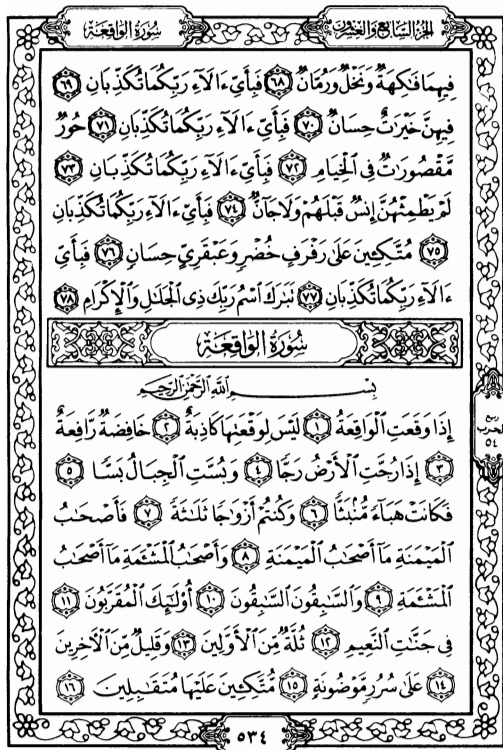 سورة الواقعة الجزء السابع والعشرون
فِيهِمَا فَٰكِهَةٌ وَنَخْلٌ وَرُمَّانٌ ٦٨ فَبِأَيِّ ءَالَآءِ رَبِّكُمَا تُكَذِّبَانِ ٦٩
فِيهِنَّ خَيْرَٰتٌ حِسَانٌ ٧٠ فَبِأَيِّ ءَالَآءِ رَبِّكُمَا تُكَذِّبَانِ ٧١ حُورٌ
مَّقْصُورَٰتٌ فِى ٱلْخِيَامِ ٧٢ فَبِأَيِّ ءَالَآءِ رَبِّكُمَا تُكَذِّبَانِ ٧٣
لَمْ يَطْمِثْهُنَّ إِنسٌ قَبْلَهُمْ وَلَا جَآنٌّ ٧٤ فَبِأَيِّ ءَالَآءِ رَبِّكُمَا تُكَذِّبَانِ
٧٥ مُتَّكِـِٔينَ عَلَىٰ رَفْرَفٍ خُضْرٍ وَعَبْقَرِىٍّ حِسَانٍ ٧٦ فَبِأَيِّ
ءَالَآءِ رَبِّكُمَا تُكَذِّبَانِ ٧٧ تَبَٰرَكَ ٱسْمُ رَبِّكَ ذِى ٱلْجَلَٰلِ وَٱلْإِكْرَامِ ٧٨
سورة الواقعة
بِسْمِ ٱللَّهِ ٱلرَّحْمَٰنِ ٱلرَّحِيمِ
إِذَا وَقَعَتِ ٱلْوَاقِعَةُ ١ لَيْسَ لِوَقْعَتِهَا كَاذِبَةٌ ٢ خَافِضَةٌ رَّافِعَةٌ
٣ إِذَا رُجَّتِ ٱلْأَرْضُ رَجًّا ٤ وَبُسَّتِ ٱلْجِبَالُ بَسًّا ٥
فَكَانَتْ هَبَآءً مُّنۢبَثًّا ٦ وَكُنتُمْ أَزْوَٰجًا ثَلَٰثَةً ٧ فَأَصْحَٰبُ
ٱلْمَيْمَنَةِ مَآ أَصْحَٰبُ ٱلْمَيْمَنَةِ ٨ وَأَصْحَٰبُ ٱلْمَشْـَٔمَةِ مَآ أَصْحَٰبُ
ٱلْمَشْـَٔمَةِ ٩ وَٱلسَّٰبِقُونَ ٱلسَّٰبِقُونَ ١٠ أُو۟لَٰٓئِكَ ٱلْمُقَرَّبُونَ ١١
فِى جَنَّٰتِ ٱلنَّعِيمِ ١٢ ثُلَّةٌ مِّنَ ٱلْأَوَّلِينَ ١٣ وَقَلِيلٌ مِّنَ ٱلْـَٔاخِرِينَ
١٤ عَلَىٰ سُرُرٍ مَّوْضُونَةٍ ١٥ مُّتَّكِـِٔينَ عَلَيْهَا مُتَقَٰبِلِينَ ١٦
٥٣٤